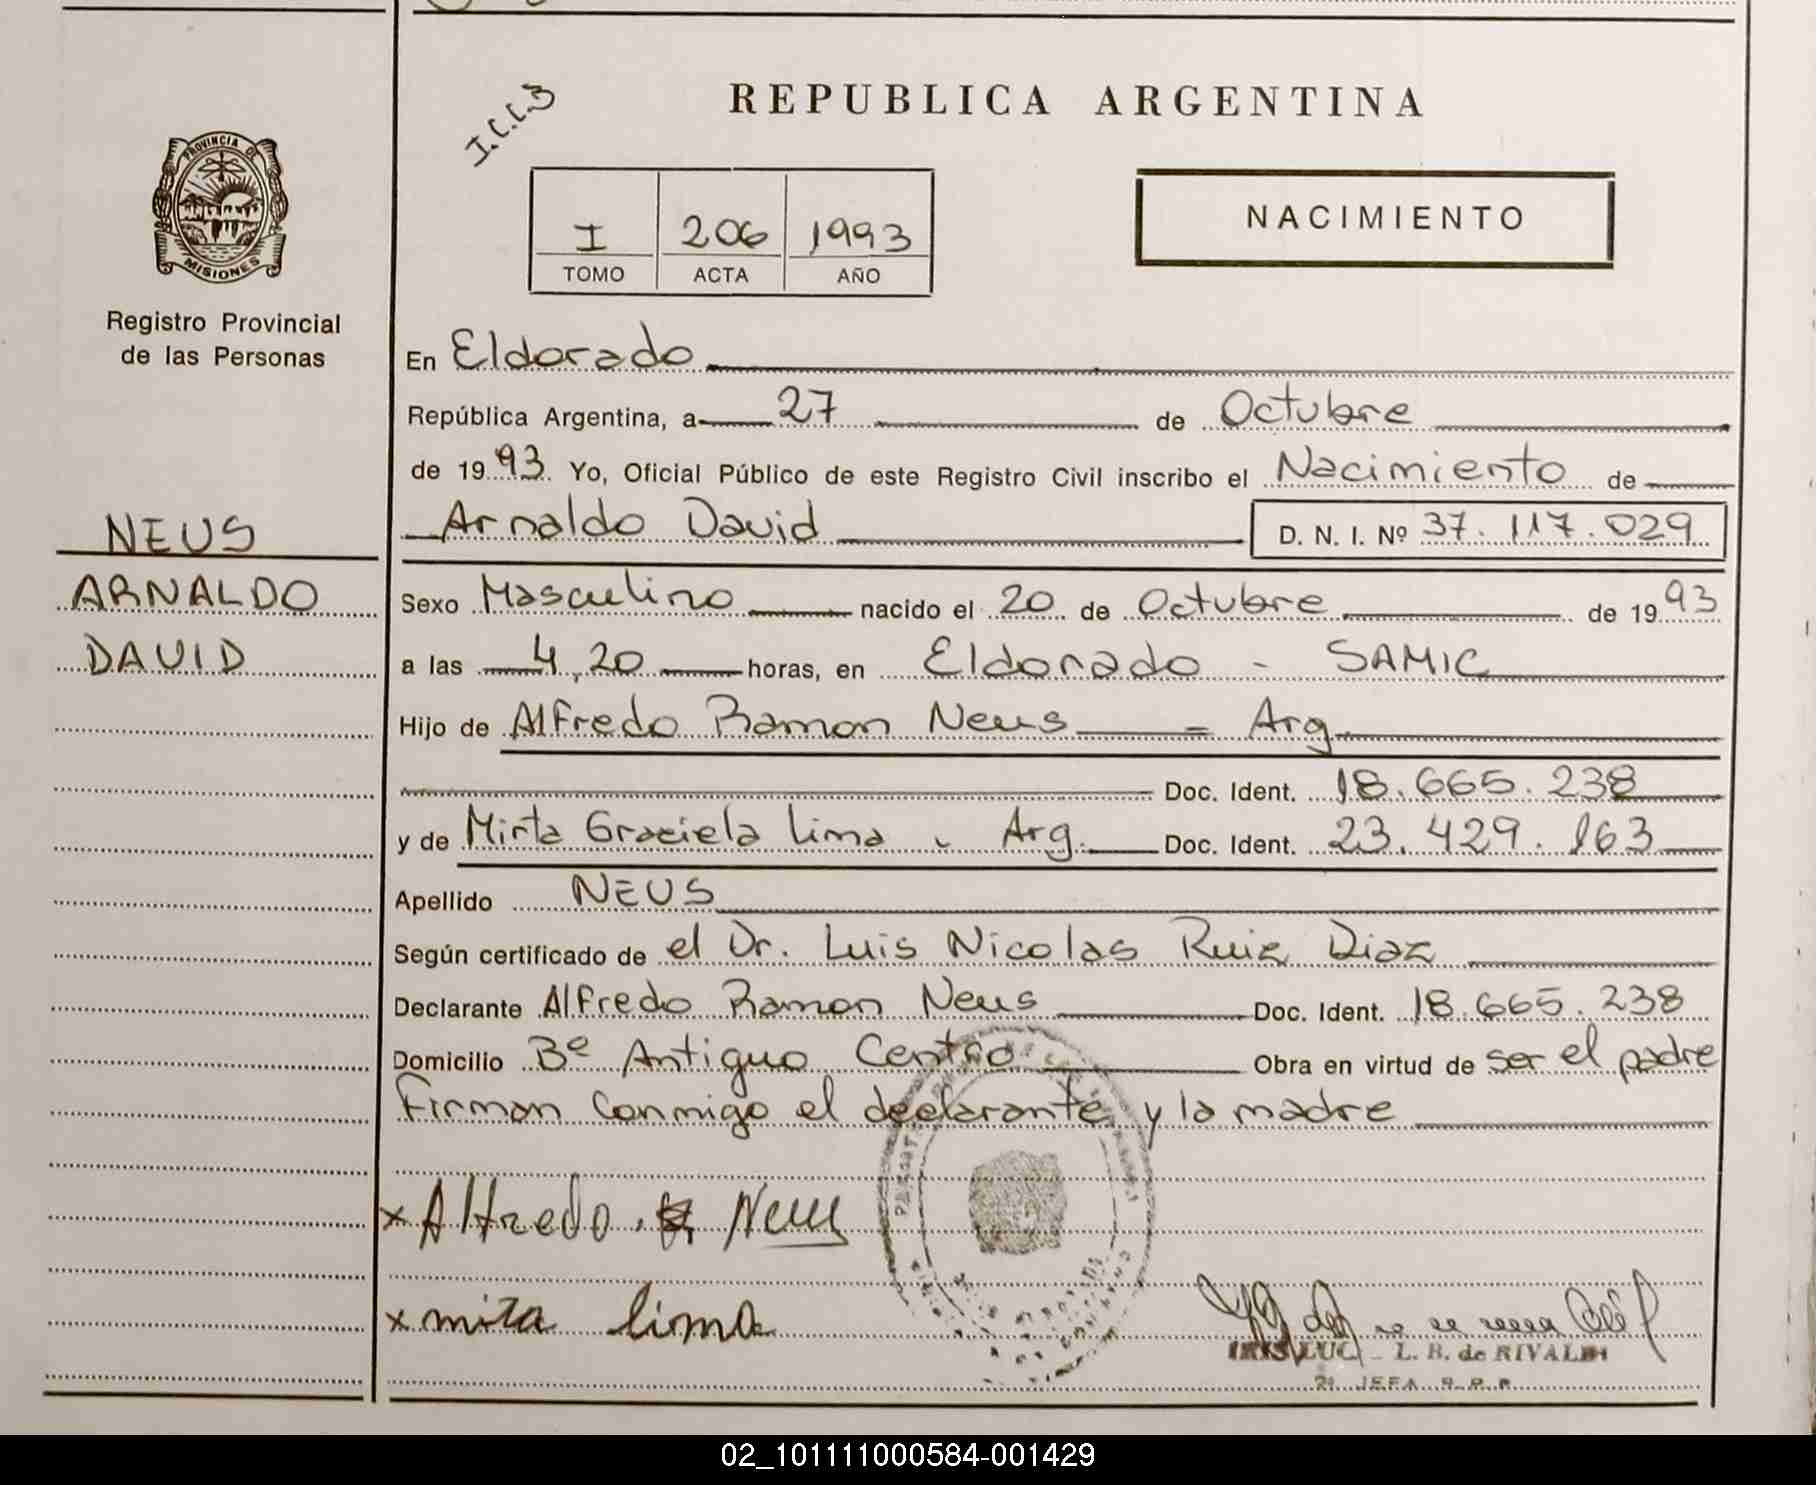 I.C.C.3
REPUBLICA ARGENTINA
PROVINCIA DE
MISIONES
Registro Provincial
de las Personas
I 206 1993
TOMO ACTA AÑO
NACIMIENTO
En Eldorado
República Argentina, a 27 de Octubre
de 1993. Yo, Oficial Público de este Registro Civil inscribo el Nacimiento de
Arnaldo David D. N. I. Nº 37.117.029
NEUS
ARNALDO
DAVID
Sexo Masculino nacido el 20 de Octubre de 1993
a las 4,20 horas, en Eldorado - SAMIC
Hijo de Alfredo Ramon Neus = Arg
Doc. Ident. 18.665.238
y de Mirta Graciela Lima - Arg. Doc. Ident. 23.429.163
Apellido NEUS
Según certificado de el Dr. Luis Nicolas Ruiz Diaz
Declarante Alfredo Ramon Neus Doc. Ident. 18.665.238
Domicilio Bº Antiguo Centro Obra en virtud de ser el padre
Firman conmigo el declarante y la madre
x Alfredo. R. Neus
x mita lima
L. B. de RIVALDI
JEFA
02_101111000584-001429